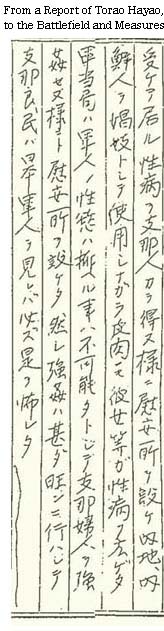 From a Report of Torao Hayao,
to the Battlefield and Measures
受ケテ居ル性病ヲ支那人カラ得ヌ様ニ慰安所ヲ設ケ内地、内
鮮人ヲ娼妓トシテ使用シナガラ皮肉ニモ彼女等ガ性病ヲ広ゲタ
軍当局ハ軍人ノ性慾ハ抑ヘル事ハ不可能ダトシテ支那婦人ヲ強
姦セヌ様ニト慰安所ヲ設ケタ 然シ強姦ハ甚ダ旺ンニ行ハレテ
支那良民ハ日本軍人ヲ見レバ必ズ是ヲ怖レタ